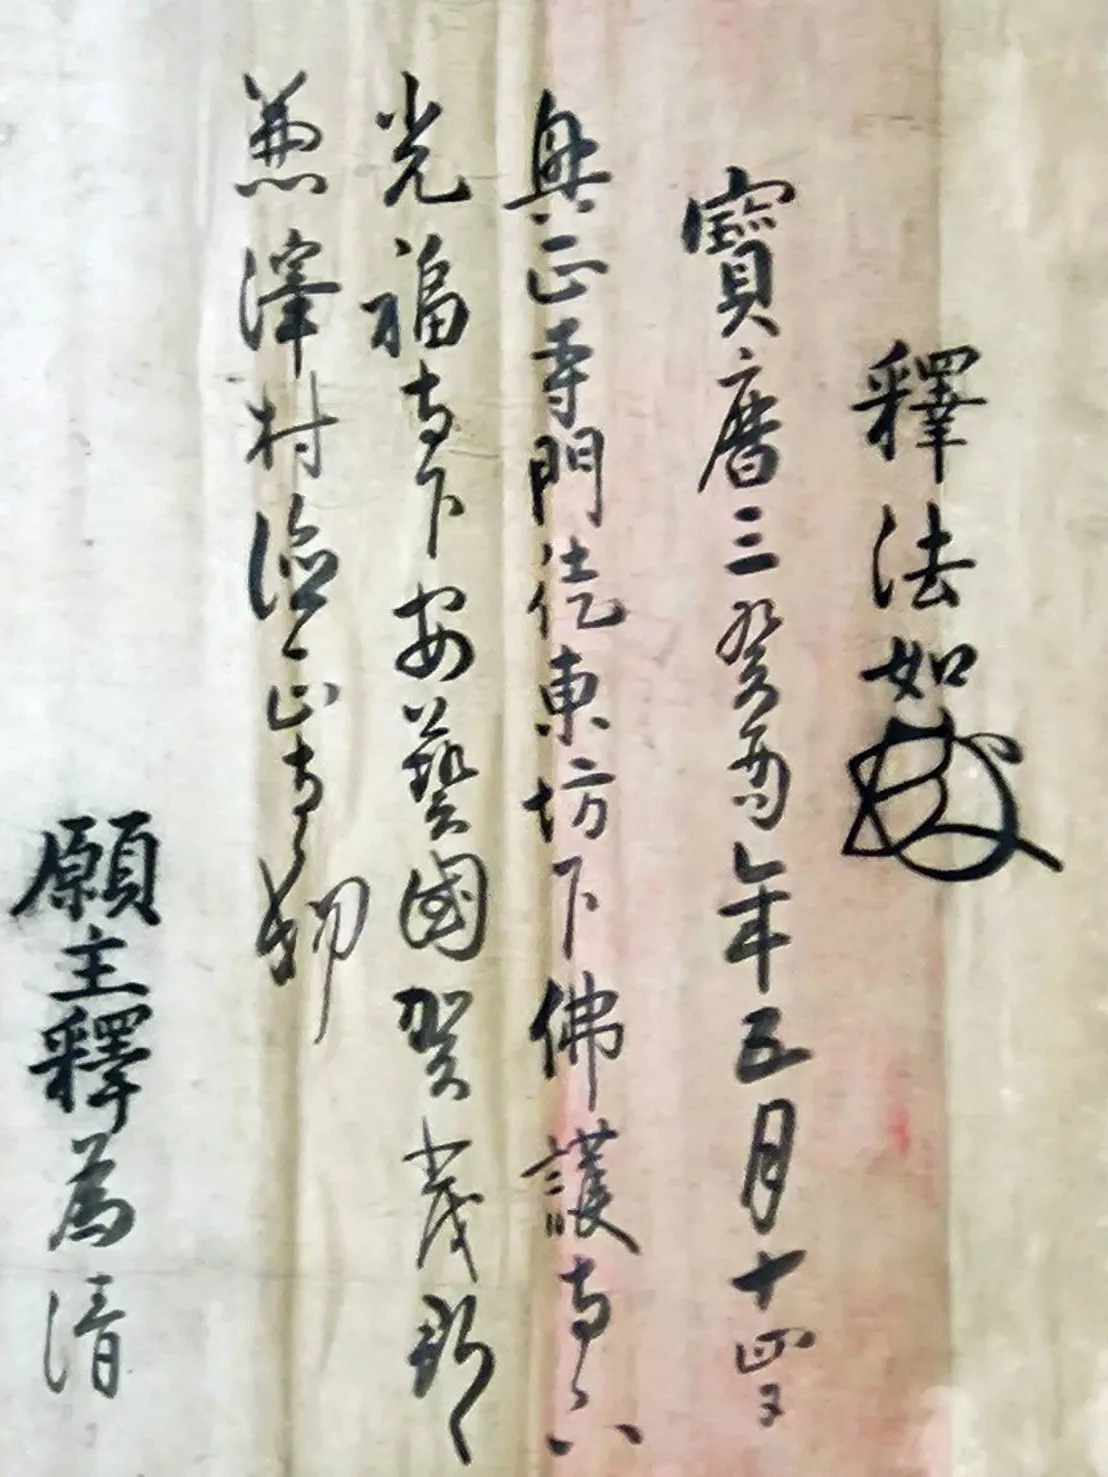 釋法如
寶曆三癸酉年五月十四日
興正寺門徒東坊下佛護寺下
光福寺下安藝國賀茂郡
兼澤村正寺物
願主釋為清